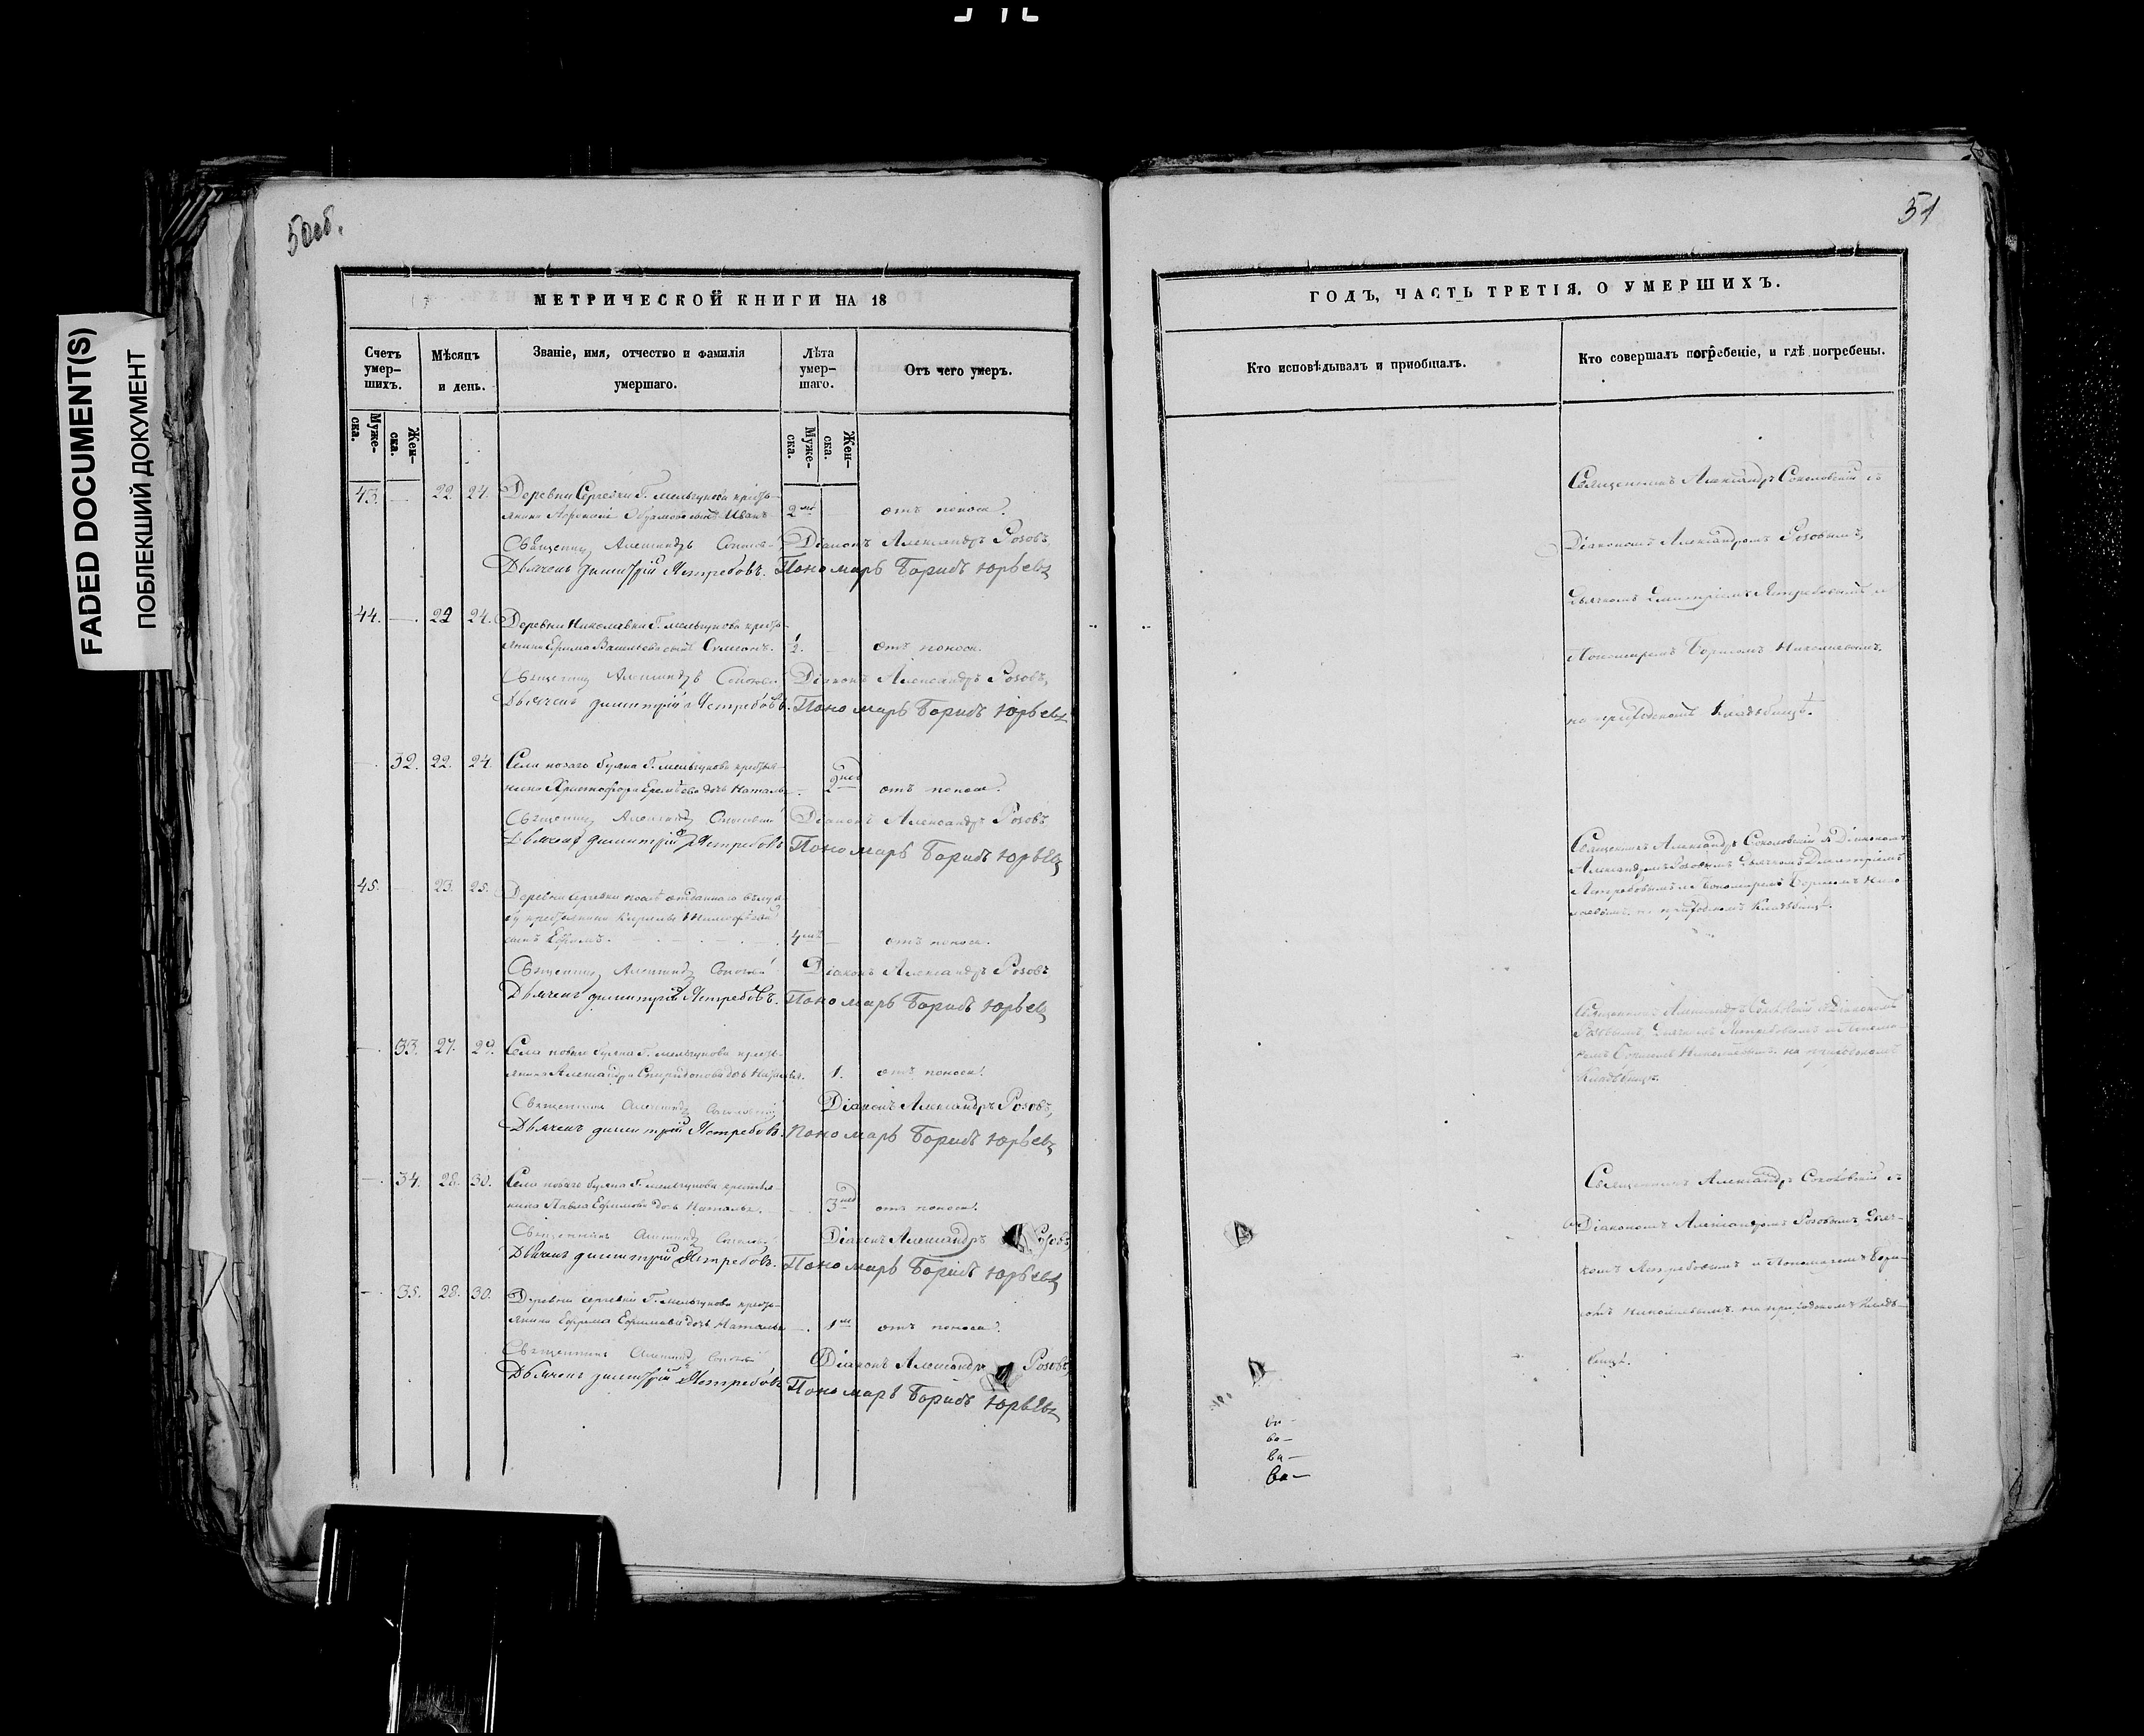 FADED DOCUMENT(S)
ПОБЛЕКШИЙ ДОКУМЕНТ
50об.
МЕТРИЧЕСКОЙ КНИГИ НА 18
Счетъ умер-шихъ.
Мѣсяцъ и день.
Званіе, имя, отчество и фамилія умершаго.
Лѣта умер-шаго.
Отъ чего умеръ.
Муже-ска.
Жен-ска.
Муже-ска.
Жен-ска.
43. — 22. 24. Деревни Сергевки Г. Мельгунова кресть-
сынъ Иванъ 2 отъ поноса.
Священник Александръ Діаконъ Александръ Розовъ
Дьячекъ Димитрій Ястребовъ. Пономарь Борисъ Юрьевъ
44. — 22 24. Деревни Николаевки Г. Мельгунова кресть-
янина Ефима Васильева сынъ Симеонъ. 1/2. отъ поноса.
Священник Александръ Діаконъ Александръ Розовъ,
Дьячекъ Димитрій Ястребовъ. Пономарь Борисъ Юрьевъ
— 32. 22. 24. Села новаго Буяна Г. Мельгунова крестья-
нина Христофора Еремѣева дочь Наталья 2 нед отъ поноса.
Священник Александръ Діаконъ Александръ Розовъ
Дьячекъ Димитрій Ястребовъ Пономарь Борисъ Юрьевъ
45. 23. 25. Деревни Сергевки
крестьянина
сынъ Ефремъ. 4 отъ поноса.
Священник Александръ Діаконъ Александръ Розовъ
Дьячекъ Димитрій Ястребовъ. Пономарь Борисъ Юрьевъ
— 33. 27. 29. Села новаго Буяна Г. Мельгунова кресть-
янина Александра Спиридонова дочь 1. отъ поноса.
Священникъ Александръ Соколовскій Діаконъ Александръ Розовъ,
Дьячекъ Димитрій Ястребовъ. Пономарь Борисъ Юрьевъ
— 34. 28. 30. Села новаго Буяна Г. Мельгунова крестья-
нина Павла Ефимова дочь Наталья. 3 нед отъ поноса.
Священникъ Александръ Діаконъ Александръ Розовъ,
Дьячекъ Димитрій Ястребовъ. Пономарь Борисъ Юрьевъ
— 35. 28. 30. Деревни Сергевки Г. Мельгунова кресть-
янина Ефрема Ефимова дочь Наталья — 1 отъ поноса.
Священникъ Александръ Діаконъ Александръ Розовъ,
Дьячекъ Димитрій Ястребовъ Пономарь Борисъ Юрьевъ
51
ГОДЪ, ЧАСТЬ ТРЕТІЯ, О УМЕРШИХЪ.
Кто исповѣдывалъ и приобщалъ.
Кто совершалъ погребеніе, и гдѣ погребены.
Священникъ Александръ Соколовскій съ
Діакономъ Александромъ Розовымъ,
Дьячкомъ Димитріемъ Ястребовымъ и
Пономаремъ Борисомъ Николаевымъ
на приходскомъ кладбищѣ.
Священникъ Александръ Соколовскій съ Діакономъ
Александромъ Розовымъ Дьячкомъ Димитріемъ
Ястребовымъ и Пономаремъ Борисомъ Нико-
лаевымъ на приходскомъ кладбищѣ.
Священникъ Александръ Соколовскій съ Діакономъ
Розовымъ, Дьячкомъ Ястребовымъ и Понома-
ремъ Борисомъ Николаевымъ на приходскомъ
кладбищѣ.
Священникъ Александръ Соколовскій съ
Діакономъ Александромъ Розовымъ Дьяч-
комъ Ястребовымъ и Пономаремъ Бори-
сомъ Николаевымъ на приходскомъ кладб-
бищѣ.
ва—
ва—
ва—
ва—